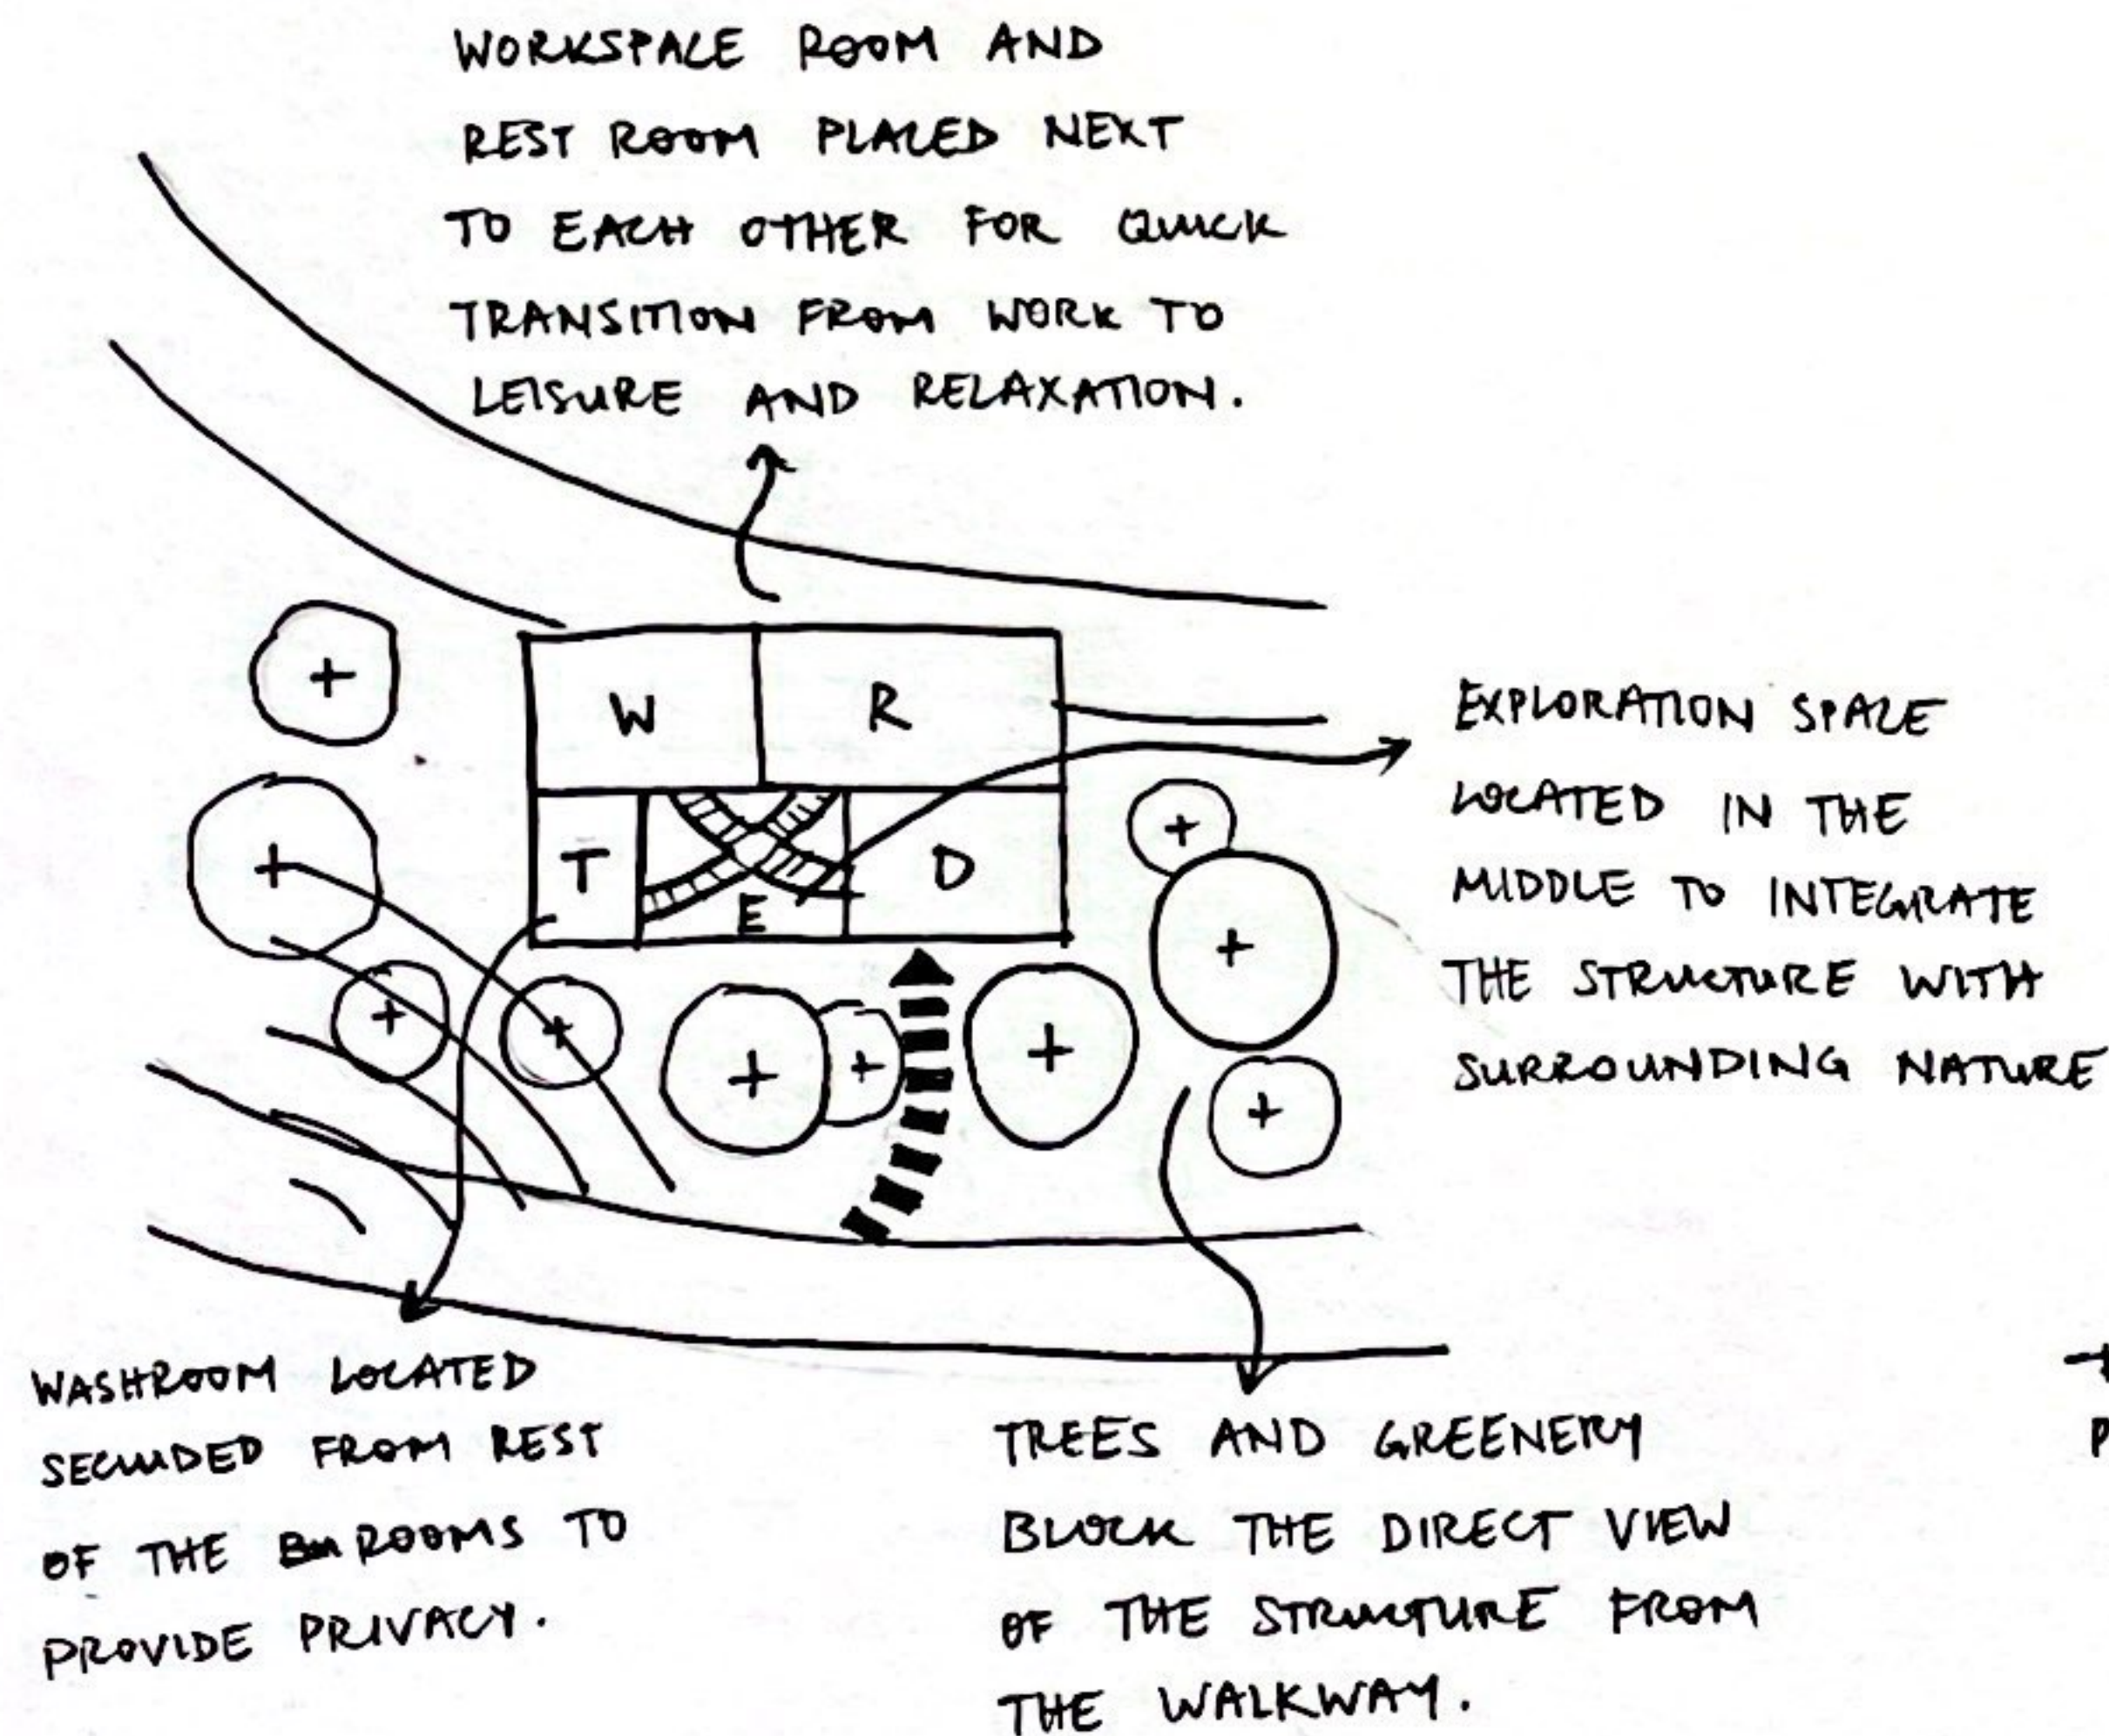 WORKSPACE ROOM AND
REST ROOM PLACED NEXT
TO EACH OTHER FOR QUICK
TRANSITION FROM WORK TO
LEISURE AND RELAXATION.
W
R
T
E
D
EXPLORATION SPACE
LOCATED IN THE
MIDDLE TO INTEGRATE
THE STRUCTURE WITH
SURROUNDING NATURE
WASHROOM LOCATED
SECLUDED FROM REST
OF THE ROOMS TO
PROVIDE PRIVACY.
TREES AND GREENERY
BLOCK THE DIRECT VIEW
OF THE STRUCTURE FROM
THE WALKWAY.
P